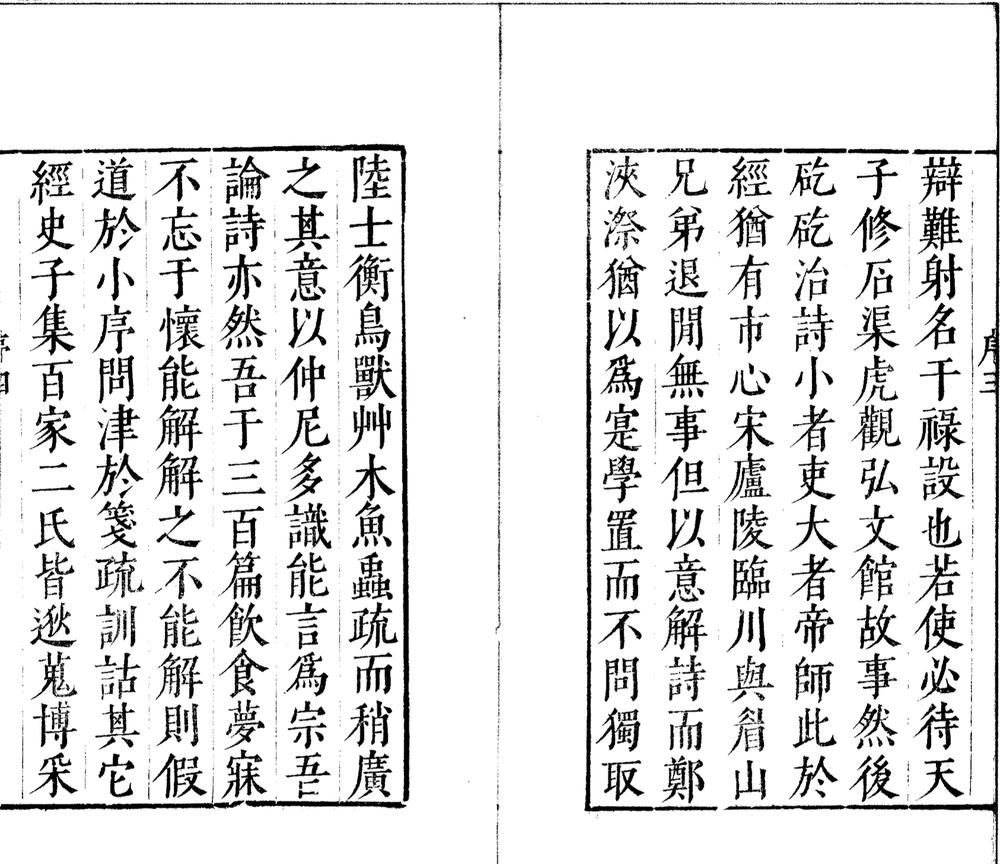 辯難射名干祿設也若使必待天
子修石渠虎觀弘文館故事然後
矻矻治詩小者吏大者帝師此於
經猶有市心宋廬陵臨川與眉山
兄弟退閒無事但以意解詩而鄭
浹漈猶以爲寔學置而不問獨取
序三
陸士衡鳥獸艸木魚蟲疏而稍廣
之其意以仲尼多識能言爲宗吾
論詩亦然吾于三百篇飲食夢寐
不忘于懷能解解之不能解則假
道於小序問津於箋疏訓詁其它
經史子集百家二氏皆逖蒐博采
序四